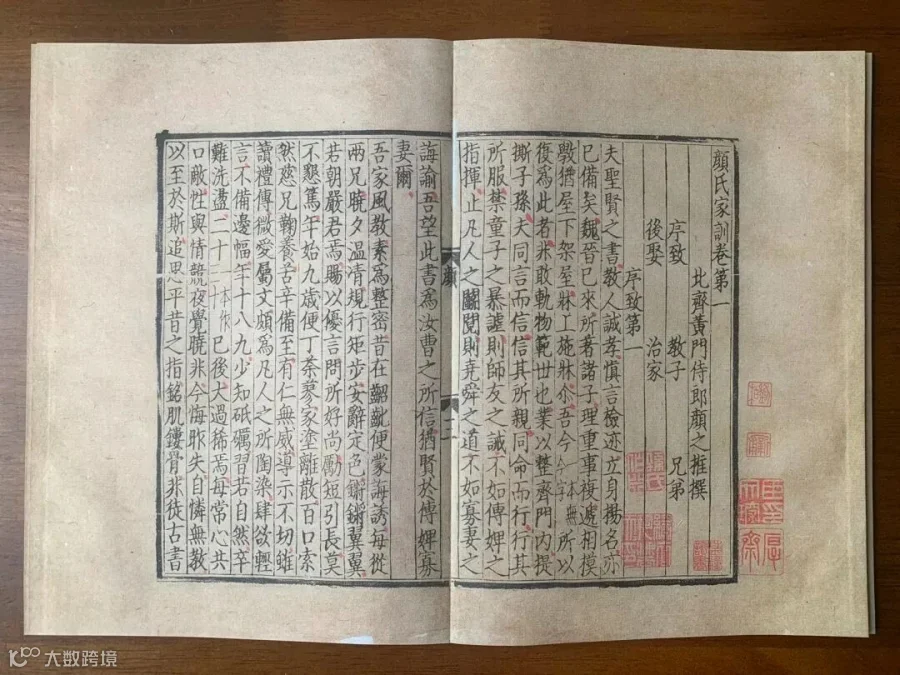 顏氏家訓卷第一
北齊黃門侍郎顏之推撰
序致 教子 兄弟
後娶 治家
序致第一
夫聖賢之書教人誠孝慎言檢迹立身揚名亦
已備矣魏晉已來所著諸子理重事複遞相模
斅猶屋下架屋牀上施牀尒吾今一本無今字所以
復爲此者非敢軌物範世也業以整齊門內提
撕子孫夫同言而信信其所親同命而行行其
所服禁童子之暴謔則師友之誡不如傅婢之
指揮止凡人之鬭鬩則堯舜之道不如寡妻之
顏
誨諭吾望此書爲汝曹之所信猶賢於傅婢寡
妻爾
吾家風教素爲整密昔在齠齔便蒙誨誘每從
兩兄曉夕溫凊規行矩步安辭定色鏘鏘翼翼
若朝嚴君焉賜以優言問所好尚勵短引長莫
不懇篤年始九歲便丁荼蓼家塗離散百口索
然慈兄鞠養苦辛備至有仁無威導示不切雖
讀禮傳微愛屬文頗爲凡人之所陶染肆欲輕
言不備邊幅年十八九少知砥礪習若自然卒
難洗盪二十一本作三十已後大過稀焉每常心共
口敵性與情競夜覺曉非今悔昨失自憐無教
以至於斯追思平昔之指銘肌鏤骨非徒古書
大数跨境